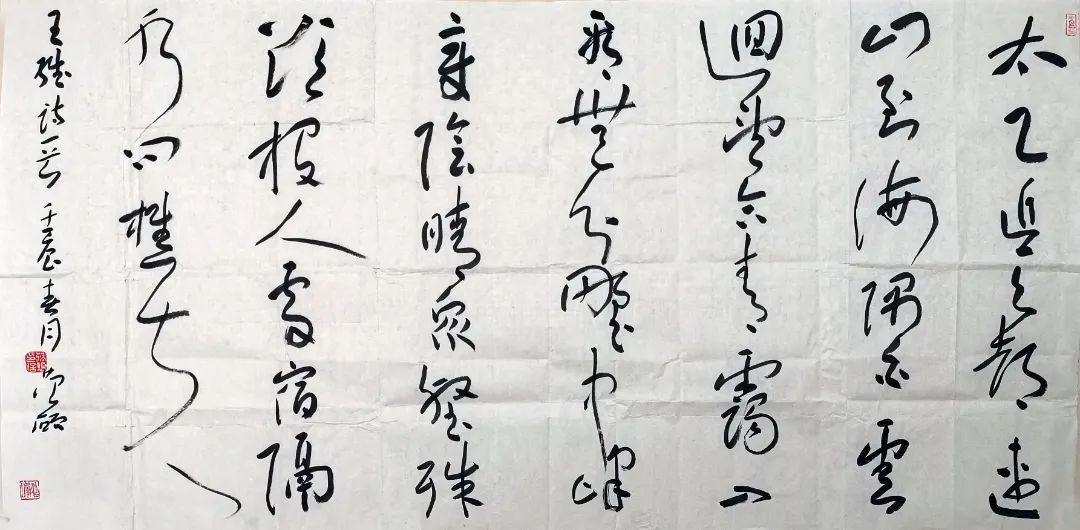 太乙近天都連
山到海隅白雲
迴望合青靄入
看無分野中峰
變陰晴衆壑殊
欲投人處宿隔
水問樵夫
王維詩一首 春月